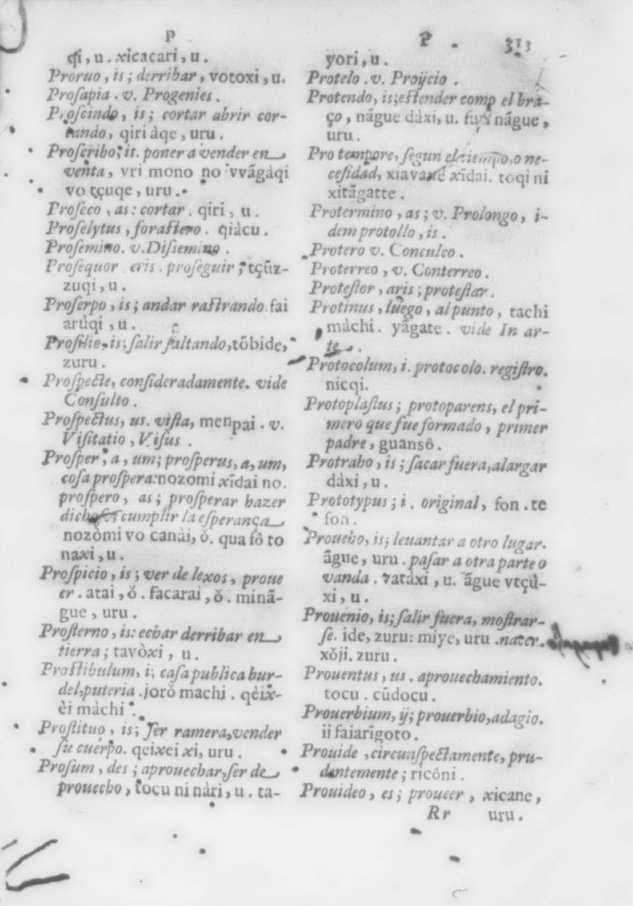 P
ſi, u. xicacari, u.
Proruo, is; derribar, votoxi, u.
Proſapia. v. Progenies.
Proſcindo, is; cortar abrir cor-
tando, qiri àqe, uru.
Proſcribo, is. poner a vender en
venta, vri mono no vvāgàqi
vo tçuqe, uru.
Proſeco, as: cortar. qiri, u.
Proſelytus, foraſtero. qiàcu.
Proſemino. v. Diſsemino.
Proſequor eris. proſeguir; tçūz-
zuqi, u.
Proſerpo, is; andar raſtrando fai
arùqi, u.
Proſilio, is; ſalir ſaltando, tŏbide,
zuru.
Proſpecte, conſideradamente. vide
Conſulto.
Proſpectus, us. viſta, menpai. v.
Viſitatio, Viſus.
Proſper, a, um; proſperus, a, um,
coſa proſpera: nozomi xīdai no.
proſpero, as; proſperar hazer
dichoſo cumplir la eſperança
nozòmi vo canài, ŏ. qua fŏ to
naxi, u.
Proſpicio, is; ver de lexos, proue
er. atai, ŏ. facarai, ŏ. minā-
gue, uru.
Proſterno, is: echar derribar en
tierra; tavòxi, u.
Proſtibulum, i; caſa publica bur-
del, puteria. jorŏ machi. qèix-
èi màchi.
Proſtituo, is; ſer ramera, vender
ſu cuerpo. qeixei xi, uru.
Proſum, des; aprouechar, ſer de
prouecho, tocu ni nàri, u. ta-
P. 313
yori, u.
Protelo. v. Proijcio.
Protendo, is; eſtender como el bra-
ço, nāgue dàxi, u. nāgue,
uru.
Pro tempore, ſegun el tiempo, o ne-
ceſidad, xidai. toqi ni
xitāgatte.
Protermino, as; v. Prolongo, i-
dem protollo, is.
Protero v. Conculco.
Proterreo, v. Conterreo.
Proteſtor, aris; proteſtar.
Protinus, luego, al punto, tachi
màchi. yāgate. vide In ar-
te.
Protocolum, i. protocolo. regiſtro.
nicqi.
Protoplaſtus; protoparens, el pri-
mero que fue formado, primer
padre, guansŏ.
Protraho, is; ſacar fuera, alargar
dàxi, u.
Prototypus; i. original, fon. te
fon.
Proueho, is; leuantar a otro lugar.
āgue, uru. paſar a otra parte o
vanda. vatàxi, u. āgue vtçū-
xi, u.
Prouenio, is; ſalir fuera, moſtrar-
ſe. ide, zuru: miye, uru. nacer.
xŏji. zuru.
Prouentus, us. aprouechamiento.
tocu. cūdocu.
Prouerbium, ij; prouerbio, adagio.
ii faiarigoto.
Prouide, circunſpectamente, pru-
dentemente; ricòni.
Prouideo, es; proueer, xicane,
Rr uru.